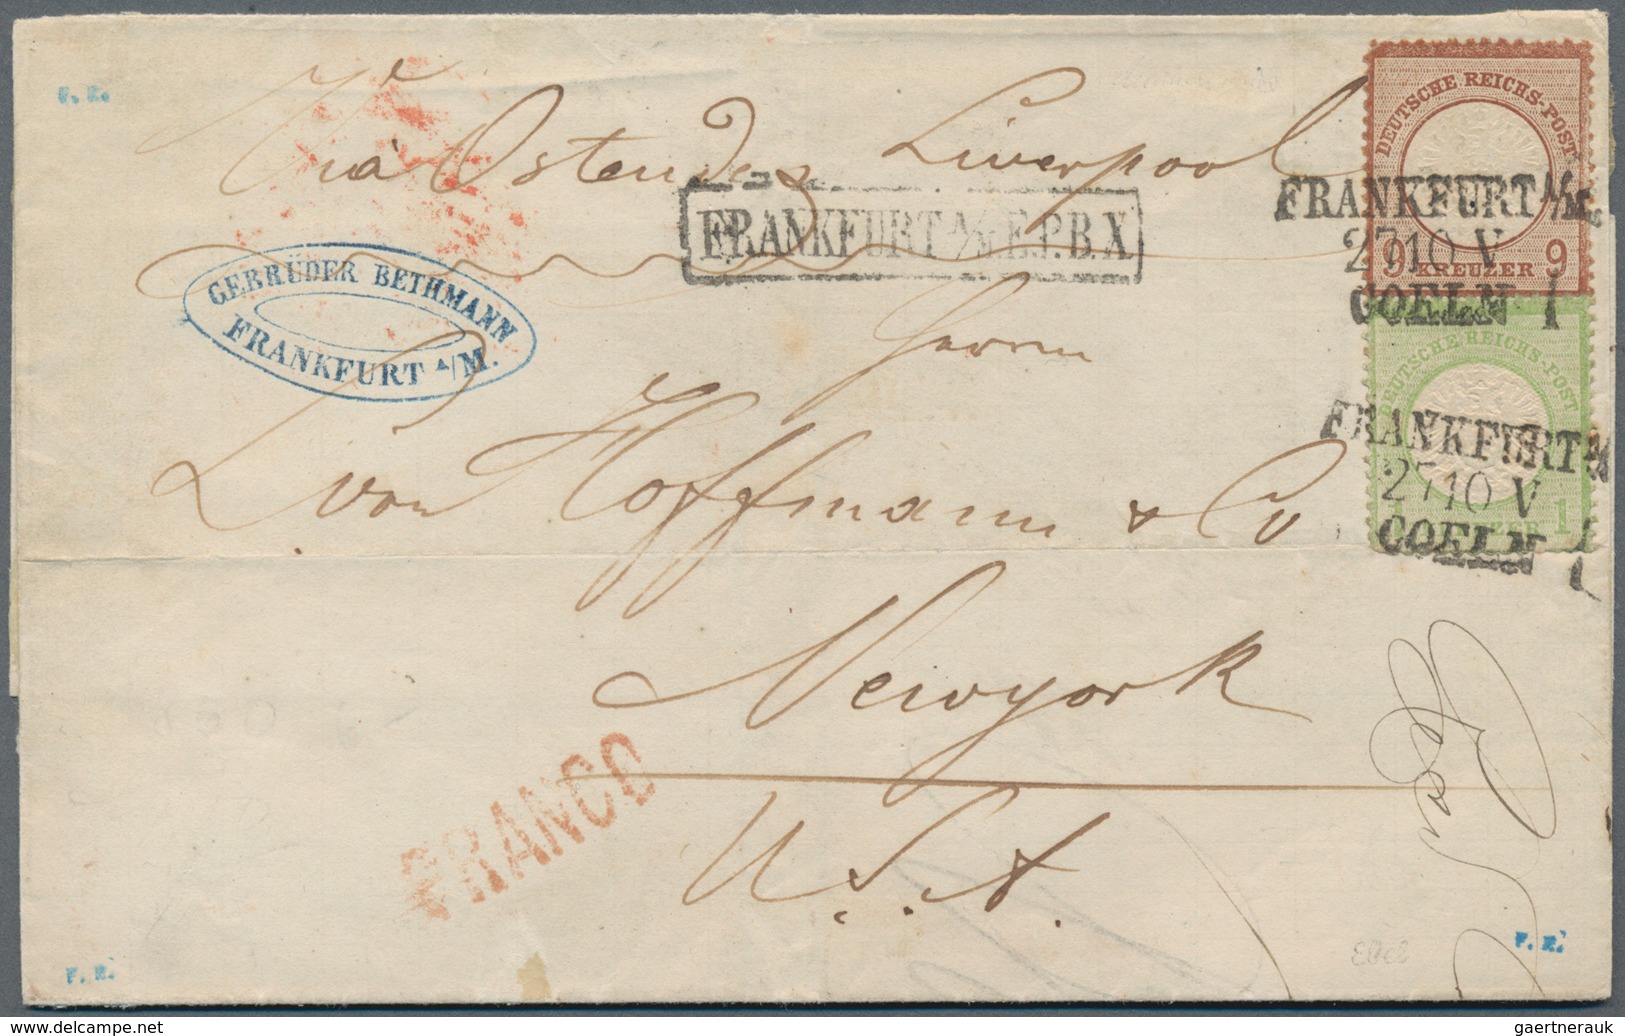 F. E.
Viâ Ostende, Liverpool
FRANKFURT A/M. F.P.B.X.
GEBRÜDER BETHMANN
FRANKFURT A/M.
Herrn
L. von Hoffmann & Co
Newyork
U.S.A.
FRANCO
DEUTSCHE REICHS-POST
9 KREUZER 9
FRANKFURT A/M.
27 10 V
COELN
DEUTSCHE REICHS-POST
1 KREUZER 1
FRANKFURT A/M
27 10 V
COELN
F. E.
Ebel
F. E.
gaertnerauk @ delcampe.net